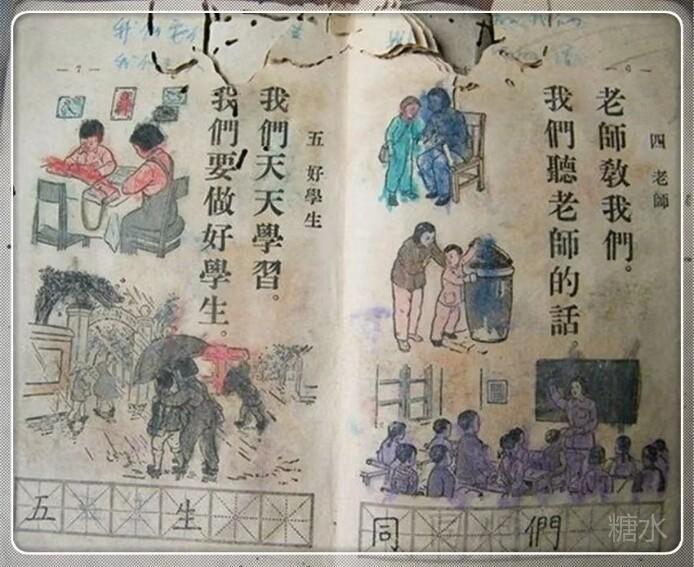 四 老師
老師教我們。
我們聽老師的話。
同 們
五 好學生
我們天天學習。
我們要做好學生。
五 生
糖水
— 7 —